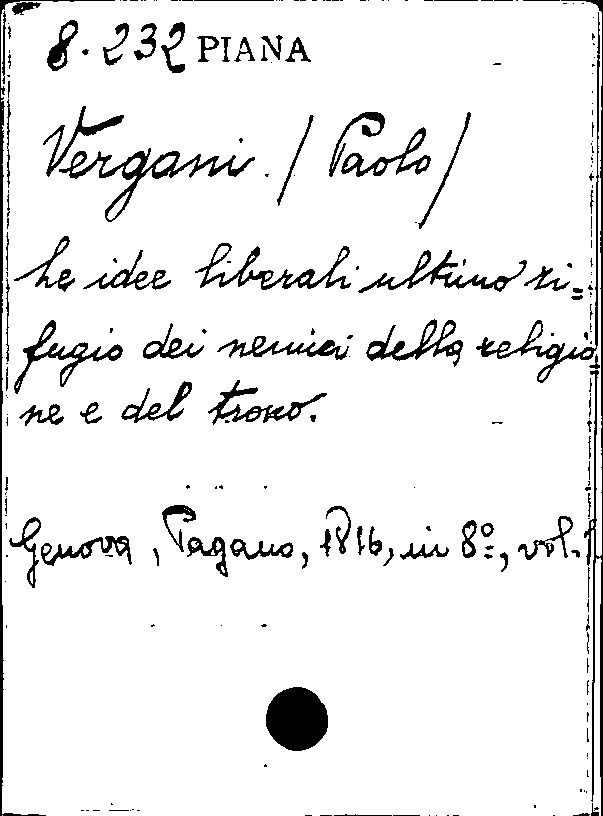 8. 232 PIANA
Vergani / Paolo /
Le idee liberali ultimo ri=
fugio dei nemici della religio=
ne e del trono.
Genova, Pagano, 1816, in 8º, vol. 1